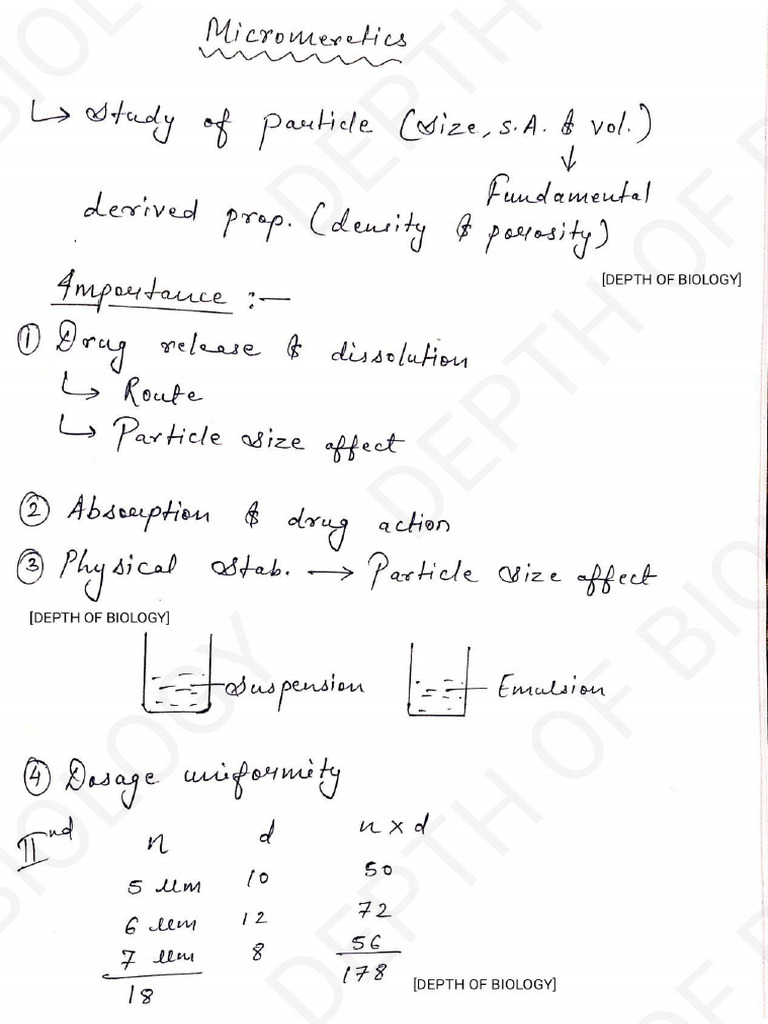 Micromeretics
↳ Study of particle (size, S.A. & vol.)
↓
Fundamental
derived prop. (density & porosity)
[DEPTH OF BIOLOGY]
Importance :—
① Drug release & dissolution
↳ Route
↳ Particle size affect
② Absorption & drug action
③ Physical stab. → Particle size affect
[DEPTH OF BIOLOGY]
Suspension Emulsion
④ Dosage uniformity
IInd n d n x d
5 µm 10 50
6 µm 12 72
7 µm 8 56
18 178
[DEPTH OF BIOLOGY]
DEPTH OF BIOLOGY